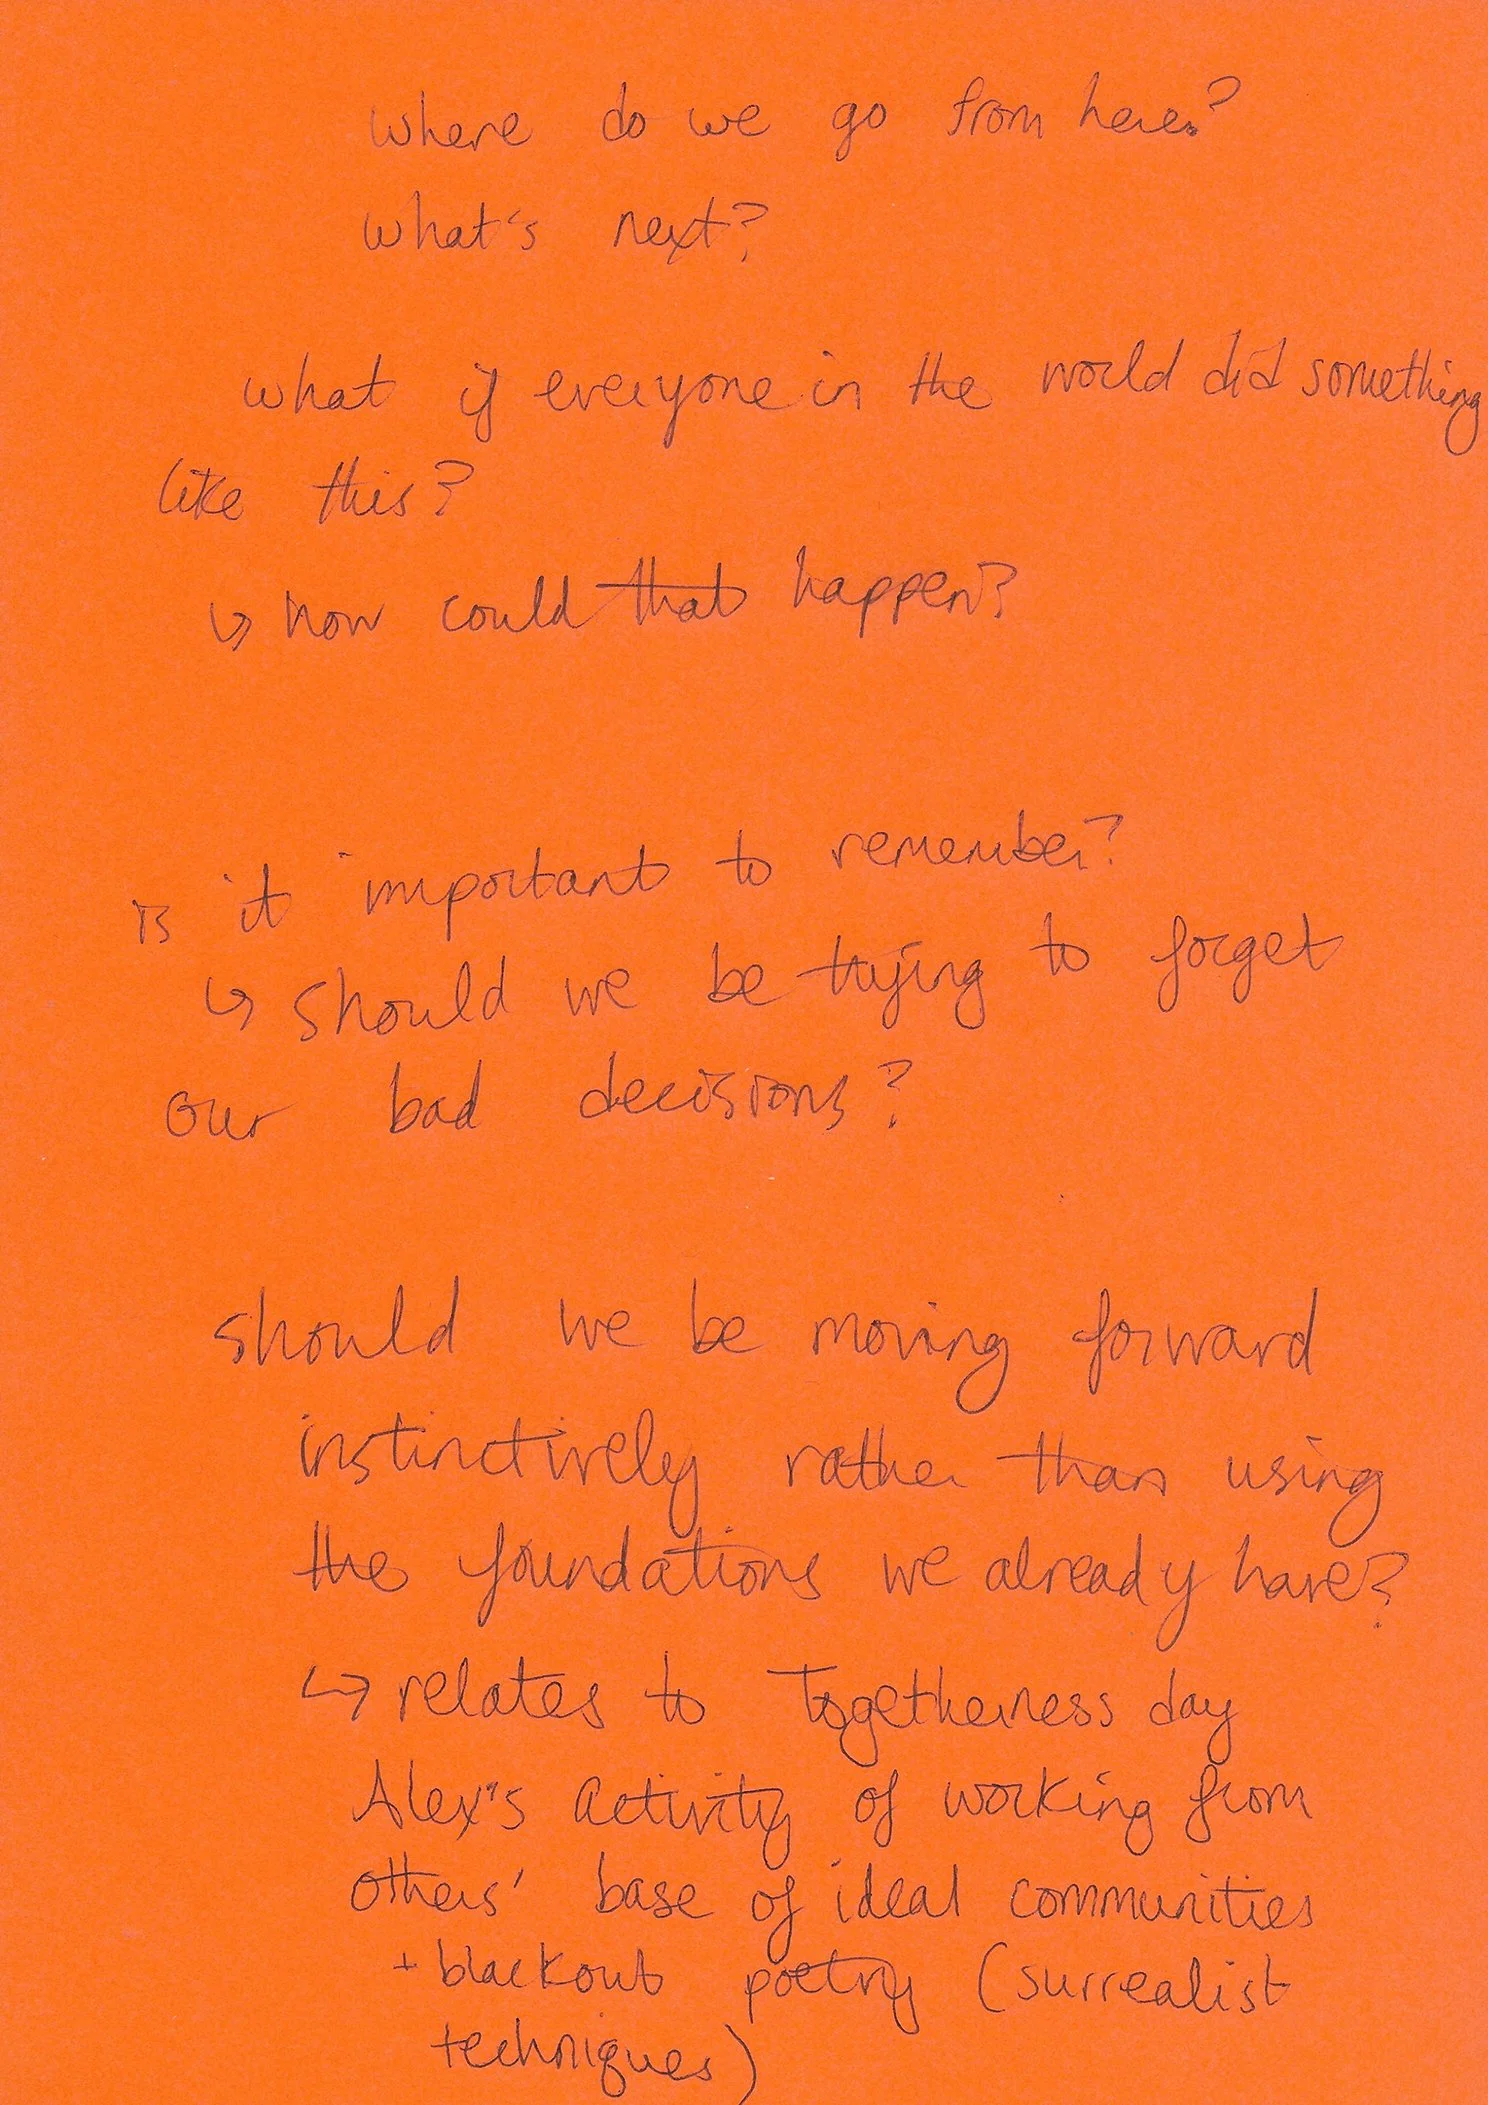 where do we go from here?
what's next?
what if everyone in the world did something
like this?
↳ how could that happen?
is it important to remember?
↳ should we be trying to forget
our bad decisions?
should we be moving forward
instinctively rather than using
the foundations we already have?
↳ relates to Togetherness day
Alex's activity of working from
others' base of ideal communities
+ blackout poetry (surrealist
techniques)